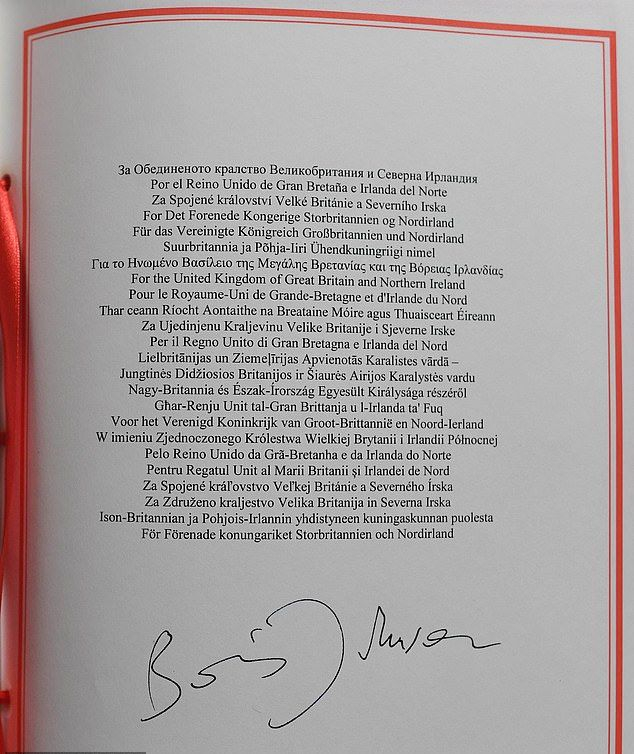 За Обединеното кралство Великобритания и Северна Ирландия
Por el Reino Unido de Gran Bretaña e Irlanda del Norte
Za Spojené království Velké Británie a Severního Irska
For Det Forenede Kongerige Storbritannien og Nordirland
Für das Vereinigte Königreich Großbritannien und Nordirland
Suurbritannia ja Põhja-Iiri Ühendkuningriigi nimel
Για το Ηνωμένο Βασίλειο της Μεγάλης Βρετανίας και της Βόρειας Ιρλανδίας
For the United Kingdom of Great Britain and Northern Ireland
Pour le Royaume-Uni de Grande-Bretagne et d'Irlande du Nord
Thar ceann Ríocht Aontaithe na Breataine Móire agus Thuaisceart Éireann
Za Ujedinjenu Kraljevinu Velike Britanije i Sjeverne Irske
Per il Regno Unito di Gran Bretagna e Irlanda del Nord
Lielbritānijas un Ziemeļīrijas Apvienotās Karalistes vārdā –
Jungtinės Didžiosios Britanijos ir Šiaurės Airijos Karalystės vardu
Nagy-Britannia és Észak-Írország Egyesült Királysága részéről
Għar-Renju Unit tal-Gran Brittanja u l-Irlanda ta' Fuq
Voor het Verenigd Koninkrijk van Groot-Brittannië en Noord-Ierland
W imieniu Zjednoczonego Królestwa Wielkiej Brytanii i Irlandii Północnej
Pelo Reino Unido da Grã-Bretanha e da Irlanda do Norte
Pentru Regatul Unit al Marii Britanii și Irlandei de Nord
Za Spojené kráľovstvo Veľkej Británie a Severného Írska
Za Združeno kraljestvo Velika Britanija in Severna Irska
Ison-Britannian ja Pohjois-Irlannin yhdistyneen kuningaskunnan puolesta
För Förenade konungariket Storbritannien och Nordirland
Boris